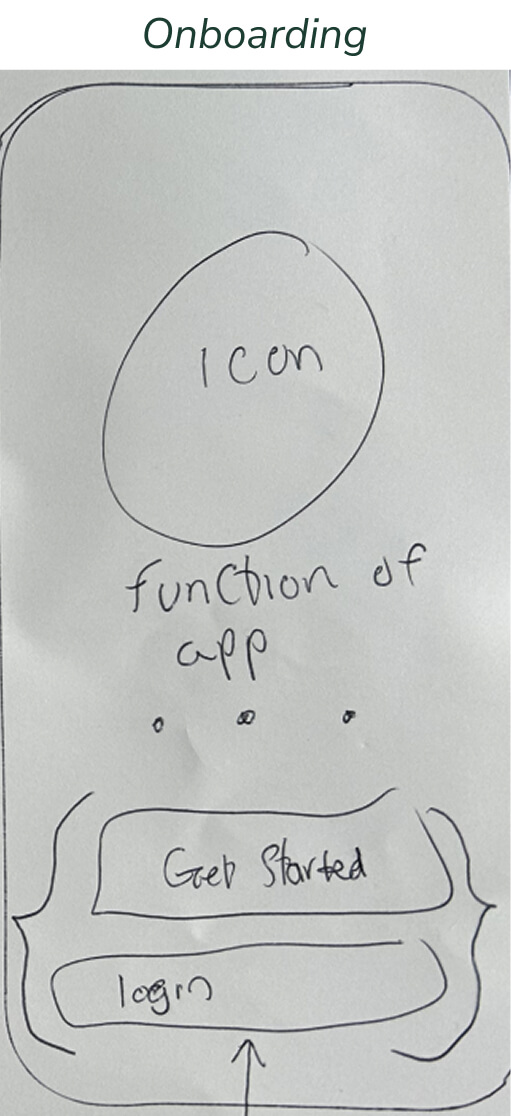 Onboarding
Icon
function of
app
Get Started
login